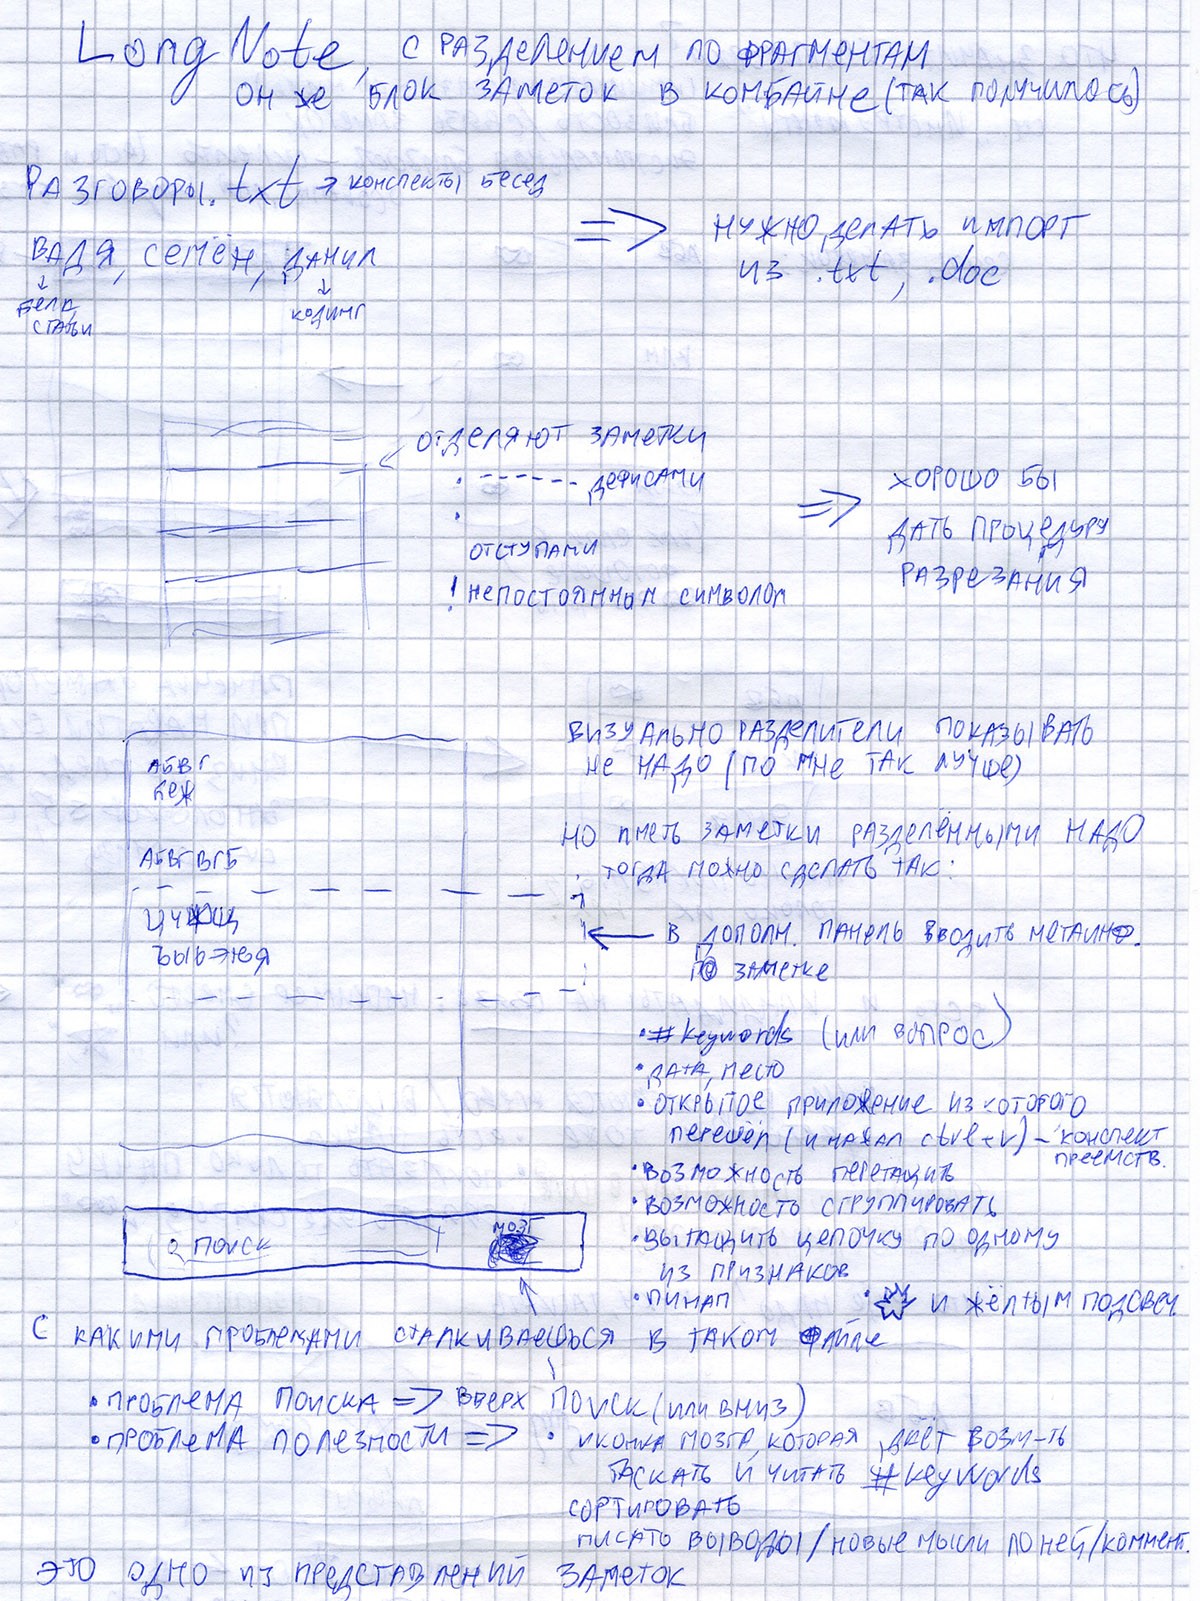 Long Note, с разделением по фрагментам
он же блок заметок в комбайне (так получилось)
Разговоры.txt → конспекты бесед
Вадя, Семён, Данил
статьи
кодинг
⇒ нужно делать импорт
из .txt, .doc
отделяют заметки
• ------ дефисами
•
отступами
! непостоянным символом
⇒ хорошо бы
дать процедуру
разрезания
визуально разделители показывать
не надо (по мне так лучше)
АБВГ
ЕЖ
но иметь заметки разделёнными НАДО
тогда можно сделать так:
АБВГВГБ
ЪЫЬЭЮЯ
← в дополн. панель вводить метаинф.
по заметке
• #keywords (или вопрос)
• дата, место
• открытое приложение из которого
перешёл (и нажал ctrl+v) – конспект
преемств.
• возможность перетащить
• возможность сгруппировать
• вытащить цепочку по одному
из признаков
• пинап
• и жёлтым подсвеч.
поиск
мозг
с какими проблемами сталкиваешься в таком файле
• проблема поиска ⇒ вверх поиск (или вниз)
• проблема полезности ⇒ • иконка мозга, которая даёт возм-ть
таскать и читать #keywords
сортировать
писать выводы/новые мысли по ней/коммент.
это одно из представлений заметок